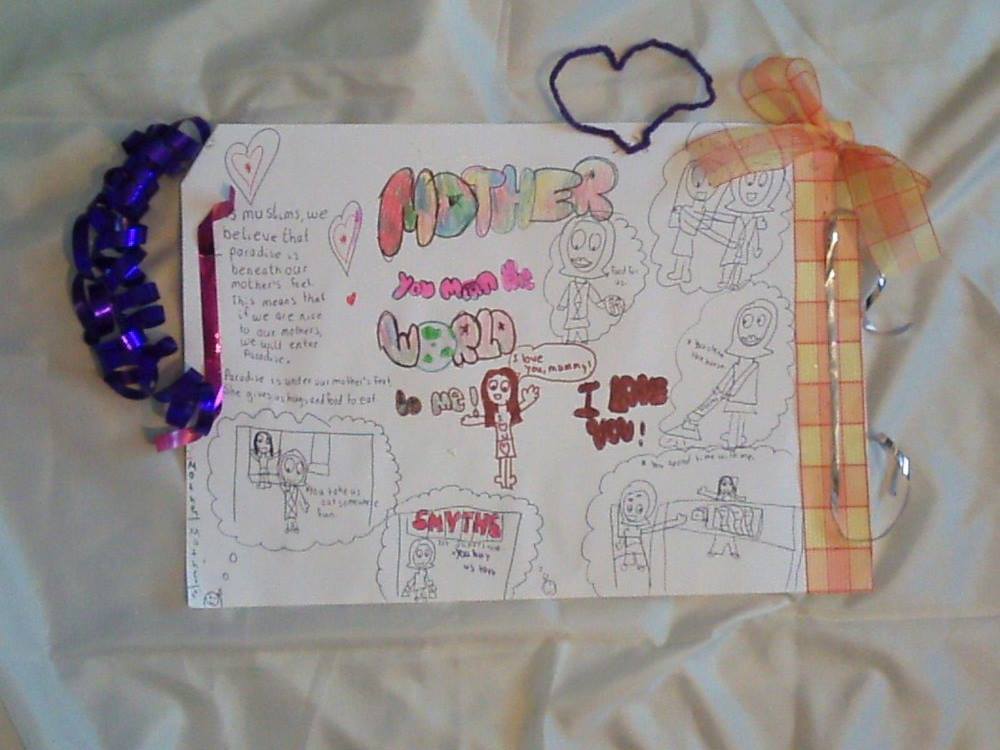 MOTHER
you mean the
WORLD
to me!
I love
you, mummy!
I LOVE
YOU!
s muslims, we
believe that
paradise is
beneath our
mother's feet.
This means that
if we are nice
to our mothers,
we will enter
Paradise.
Paradise is under our mother's feet
She gives us hugs and food to eat.
food for
us.
You clean
the house
You spend time with me.
You take us
out somewhere
fun.
SMYTHS
You buy
us toys
Mother Mother